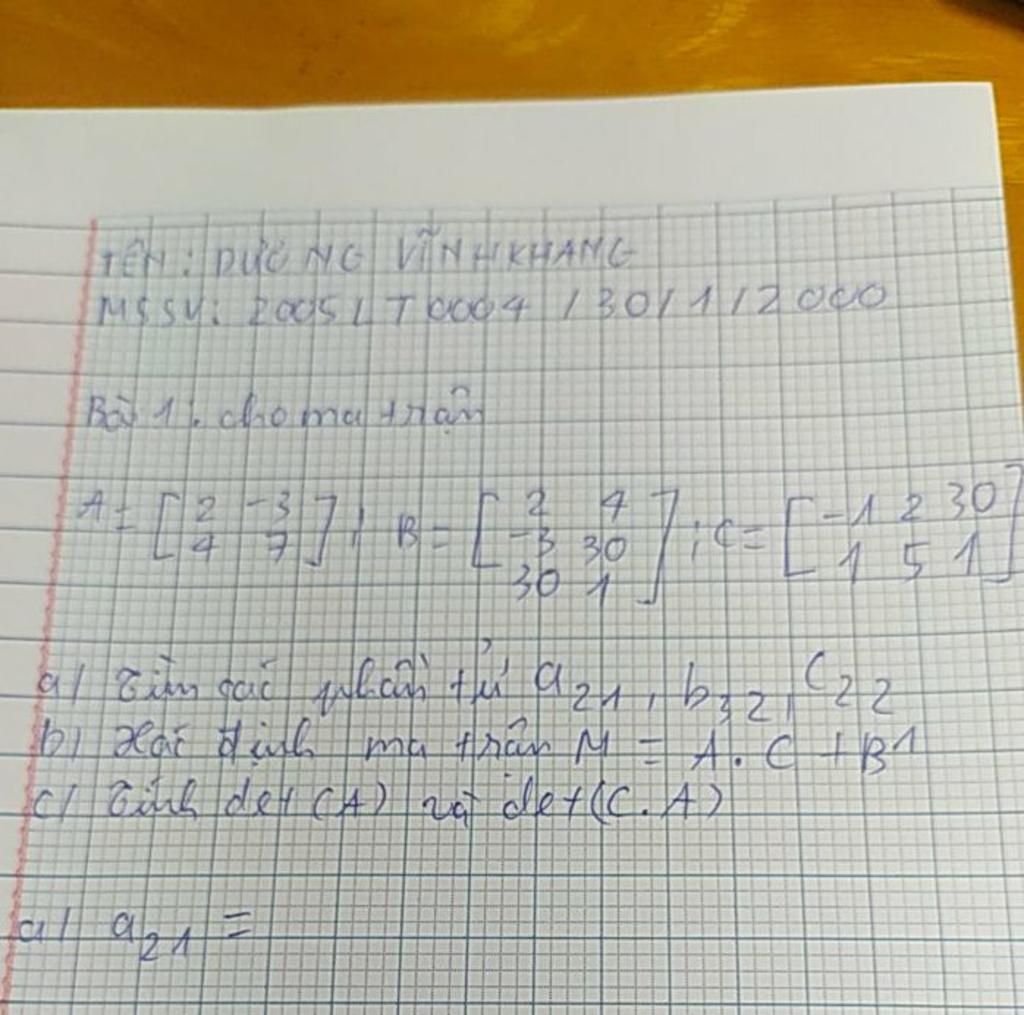 TÊN: DƯƠNG VĨNH KHANG
MSSV: 2005LT0004 / 30/1/2000
Bài 1: cho ma trận
A = [2 -3; 4 7]; B = [2 4; -3 30; 30 1]; C = [-1 2 30; 1 5 1]
a) Tìm các phần tử a21, b32, c22
b) Xác định ma trận M = A.C + B1
c) Tính det(A) và det(C.A)
a) a21 =